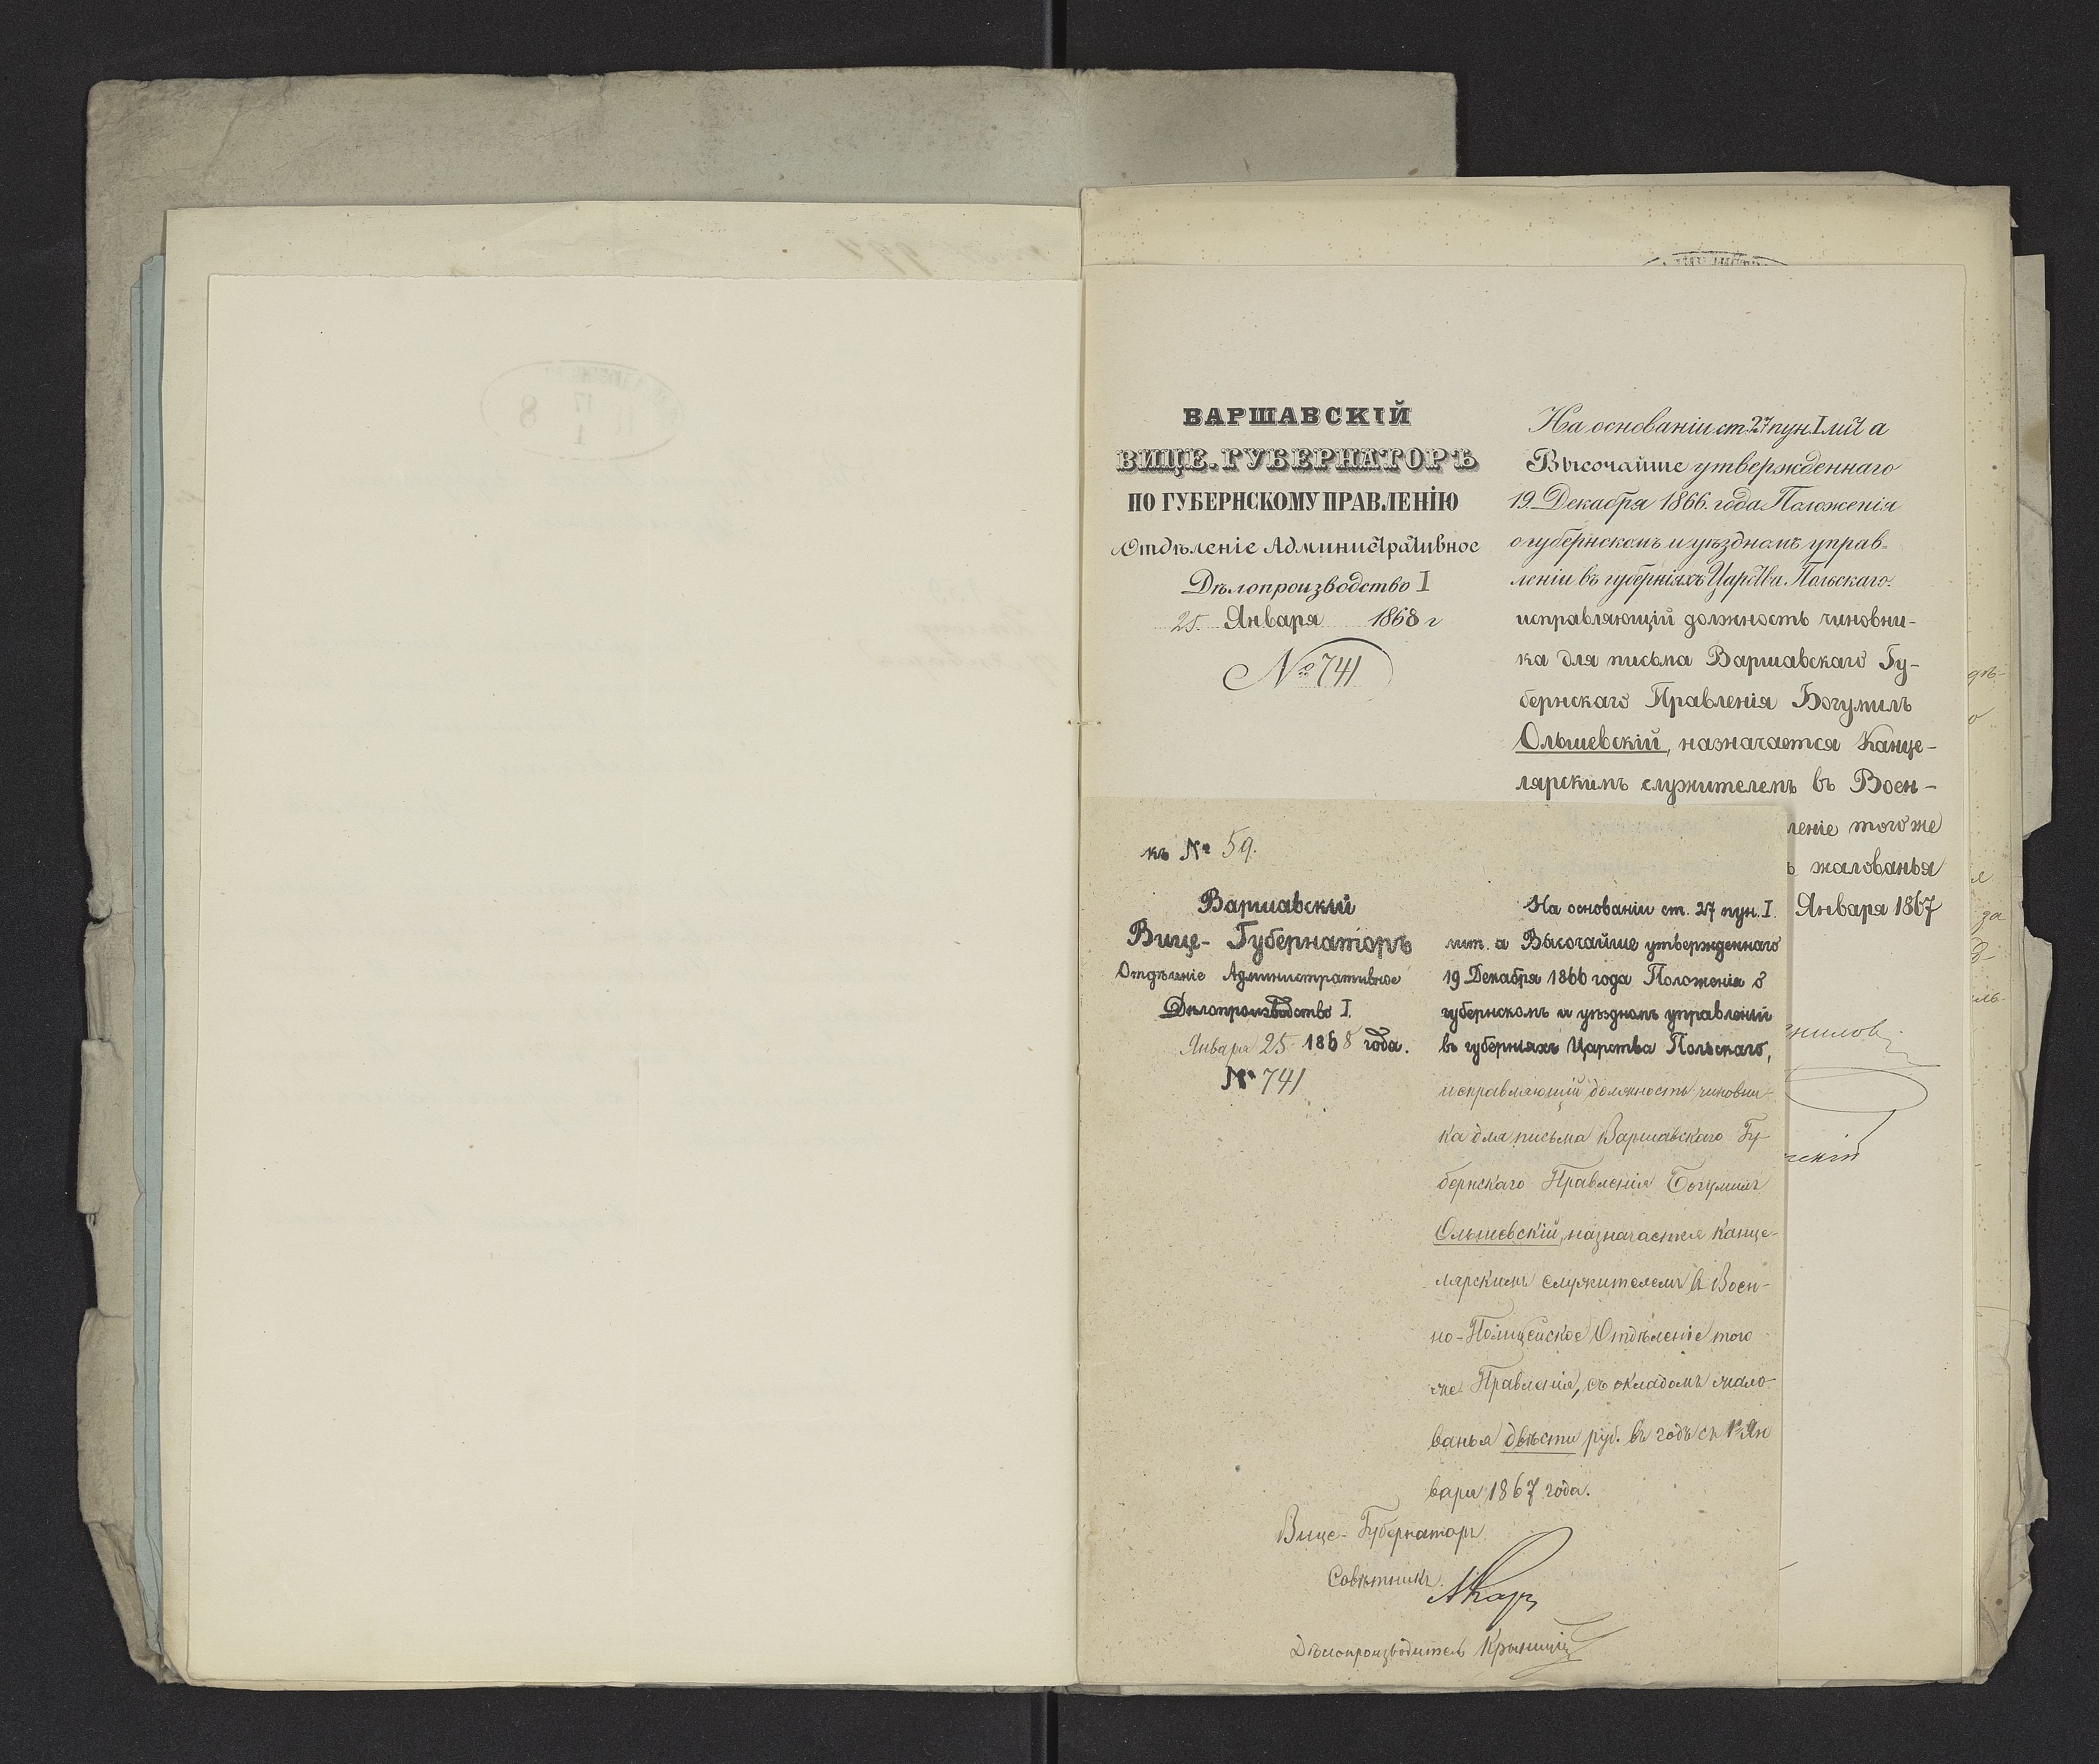 ВАРШАВСКІЙ
ВИЦЕ-ГУБЕРНАТОРЪ
ПО ГУБЕРНСКОМУ ПРАВЛЕНІЮ
Отдѣленіе Административное
Дѣлопроизводство I
25. Января 1868 г
№ 741
На основаніи ст. 27 пун. I лит а
Высочайше утвержденнаго
19. Декабря 1866. года Положенія
о губернскомъ и уѣздномъ управ-
леніи въ губерніяхъ Царства Польскаго.
исправляющій должность чиновни-
ка для письма Варшавскаго Гу-
бернскаго Правленія Богумилъ
Ольшевскій, назначается Канце-
лярскимъ служителемъ въ Воен-
леніе того же
ъ жалованья
Января 1867
къ № 59.
Варшавскій
Вице-Губернаторъ
Отдѣленіе Административное
Дѣлопроизводство I.
Января 25 1868 года.
№ 741
На основаніи ст. 27 пун. I.
лит. а Высочайше утвержденнаго
19 Декабря 1866 года Положенія о
губернскомъ и уѣздномъ управленіи
въ губерніяхъ Царства Польскаго,
исправляющій должность чиновни-
ка для письма Варшавскаго Гу-
бернскаго Правленія Богумилъ
Ольшевскій, назначается Канце-
лярскимъ служителемъ въ Воен-
но-Полицейское Отдѣленіе того
же Правленія, съ окладомъ жало-
ванья двѣсти руб. въ годъ съ 1го Ян
варя 1867 года.
Вице-Губернаторъ
Совѣтникъ
Дѣлопроизводитель